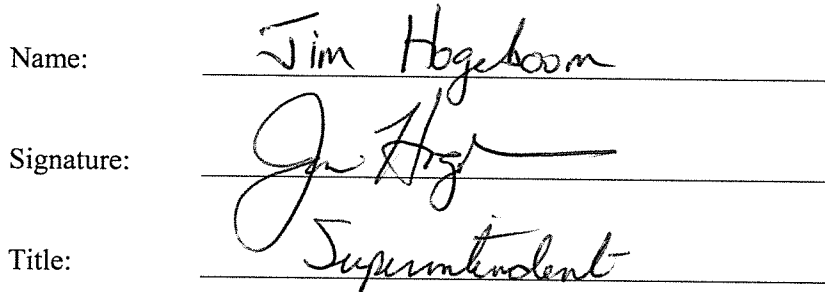 Name: Jim Hogeboom
Signature: Jim Hog
Title: Superintendent